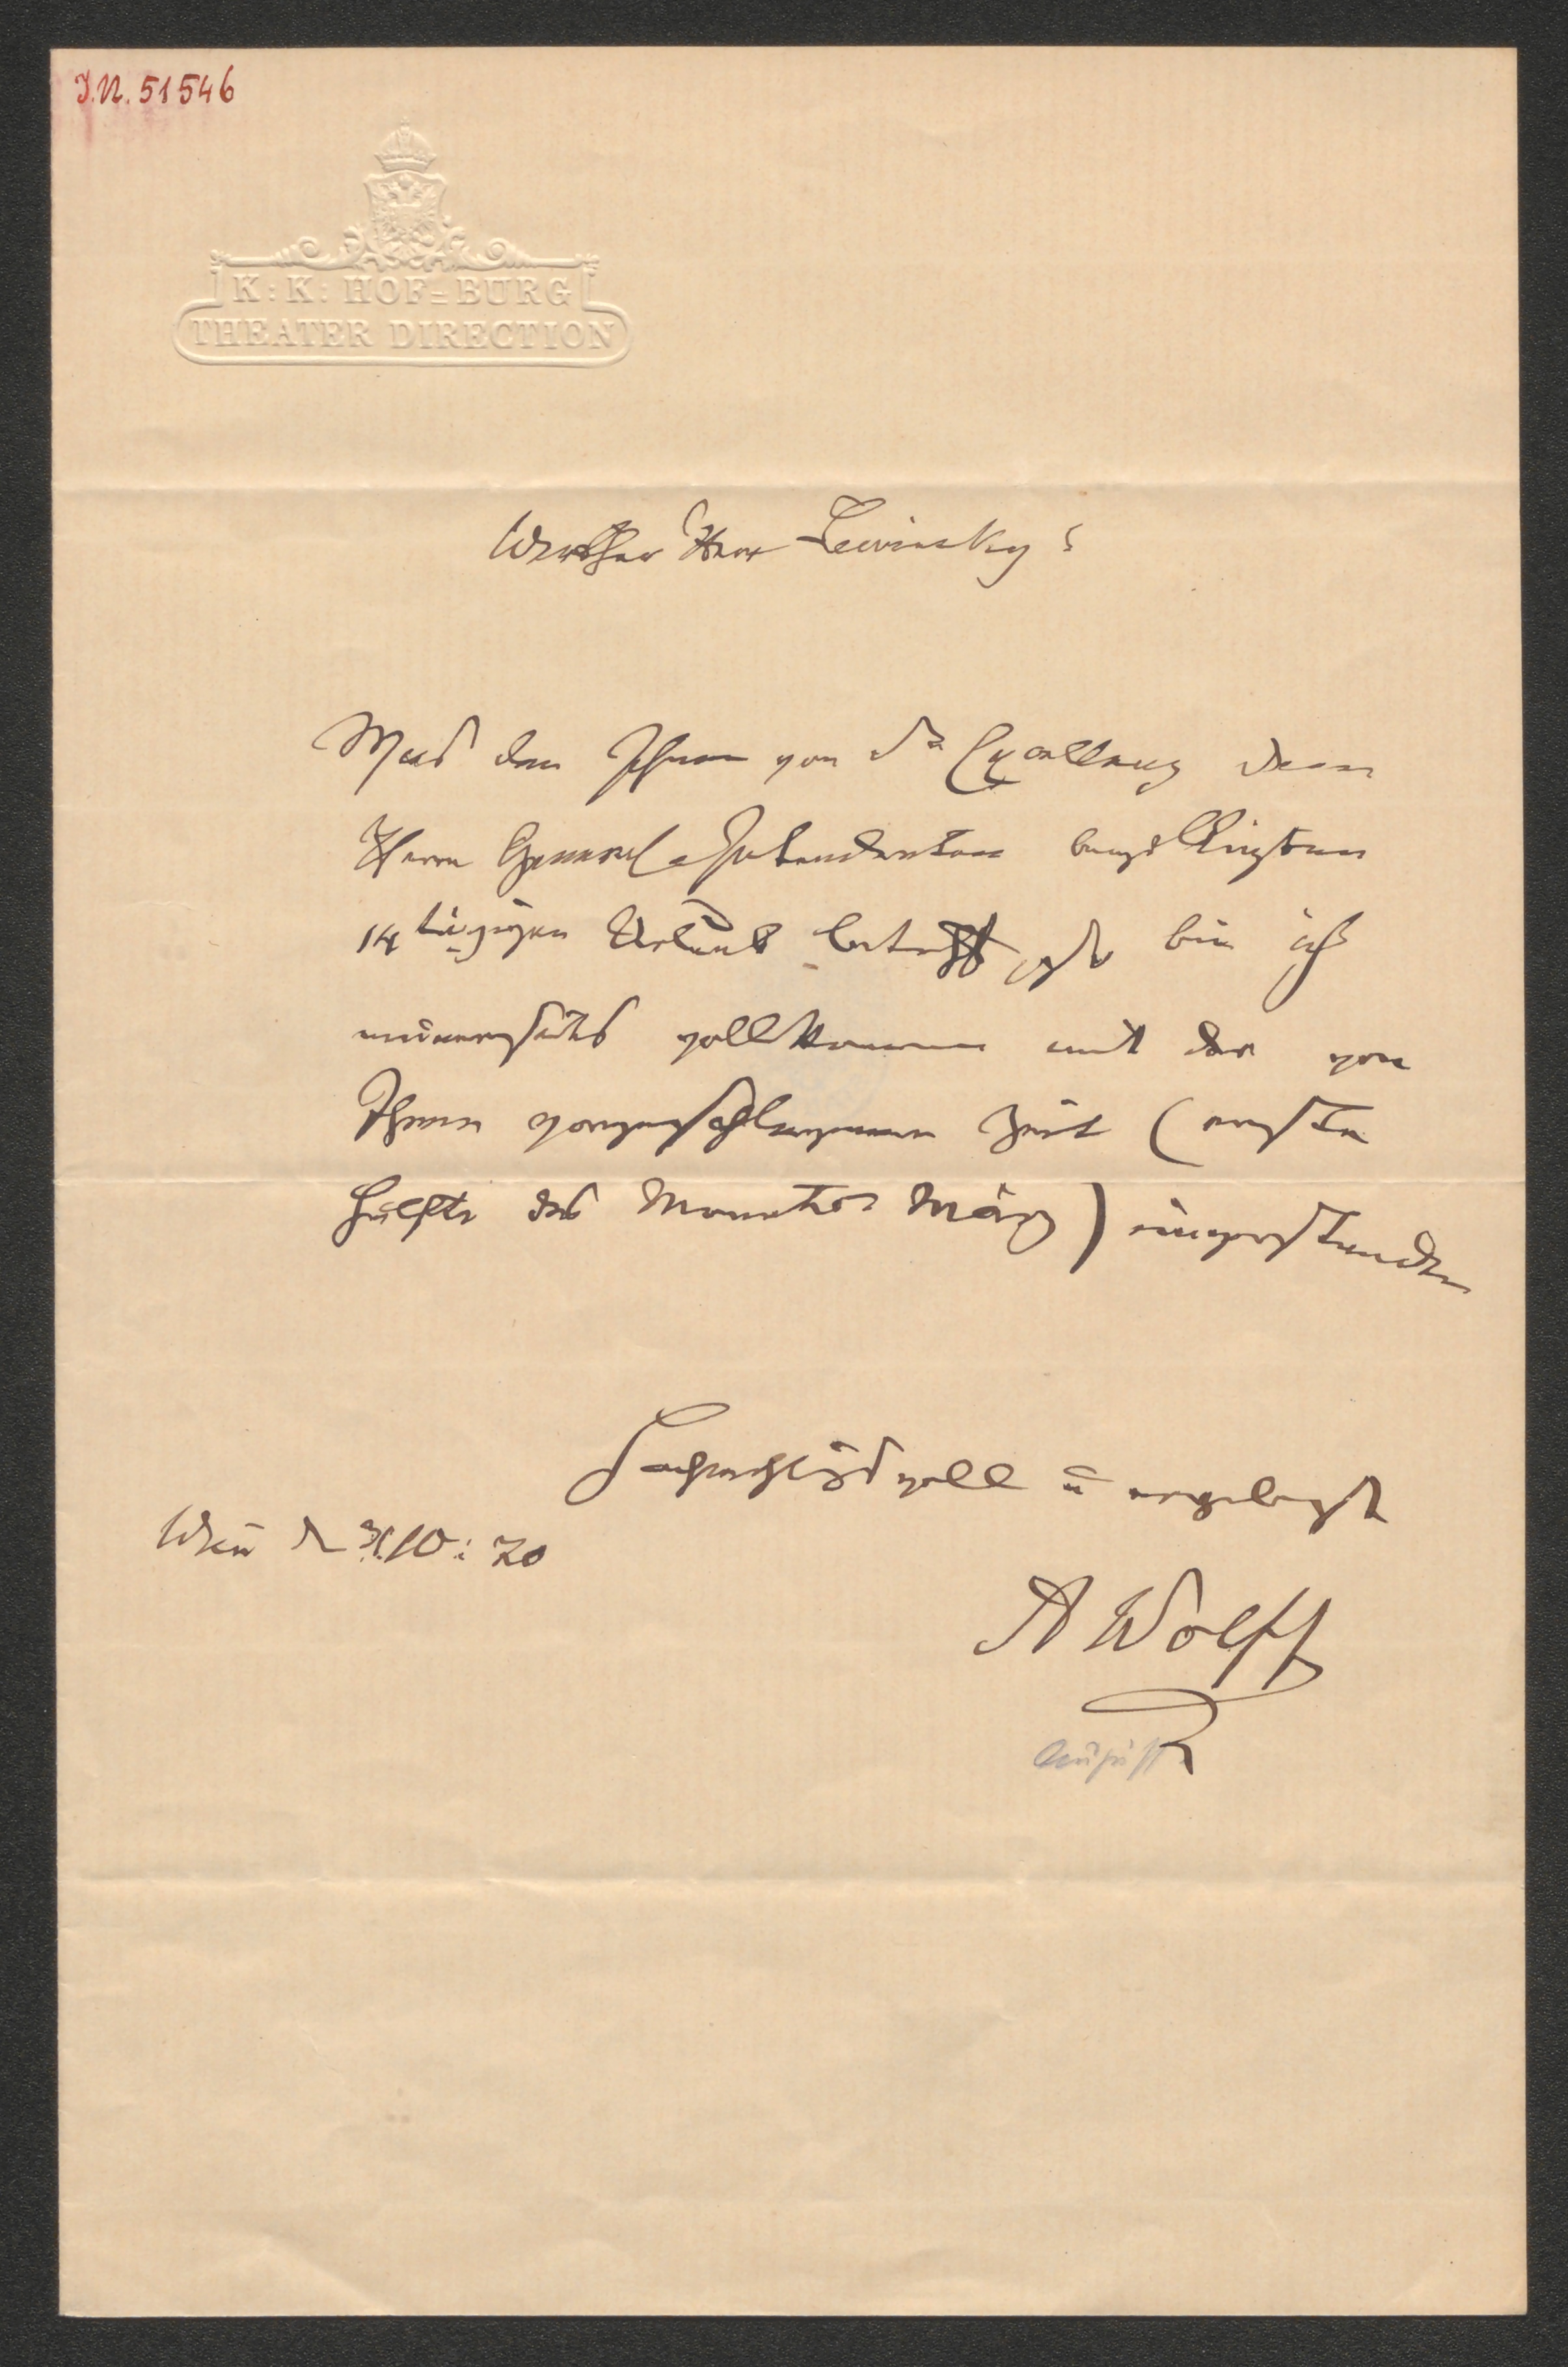 I.N. 51546
K: K: HOF=BURG
THEATER DIRECTION
Werther Herr Lewinsky!
Was den Ihnen von Sr Excellenz dem
Herrn General-Intendanten bewilligten
14 tägigen Urlaub betrifft, so bin ich
meinerseits vollkommen mit der von
Ihnen vorgeschlagenen Zeit (erste
Hälfte des Monates März) einverstanden
Hochachtungsvoll u ergebenst
Wien d 31.10: 70
A Wolff
August